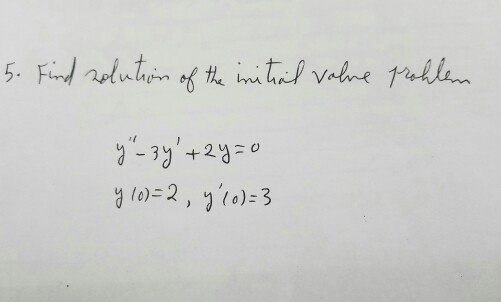 5. Find solution of the initial value problem
y'' - 3y' + 2y = 0
y(0) = 2, y'(0) = 3